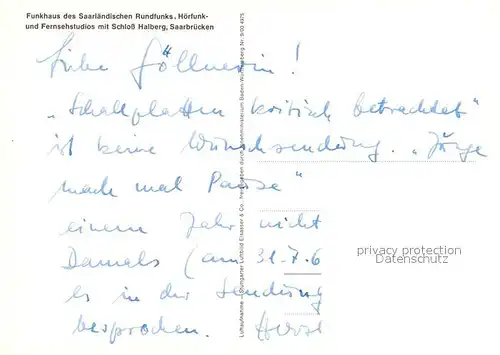 Funkhaus des Saarländischen Rundfunks, Hörfunk-
und Fernsehstudios mit Schloß Halberg, Saarbrücken
Liebe Göllnerin!
„Schallplatten kritisch betrachtet"
ist keine Wunschsendung. „Jürge
mach mal Pause"
einem Jahr nicht
Damals (am 31.7.6
es in der Sendung
besprochen. Horst
privacy protection
Datenschutz
Luftaufnahme — Stuttgarter Luftbild Elsässer & Co. Freigegeben durch Innenministerium Baden-Württemberg Nr. 9/60 4975